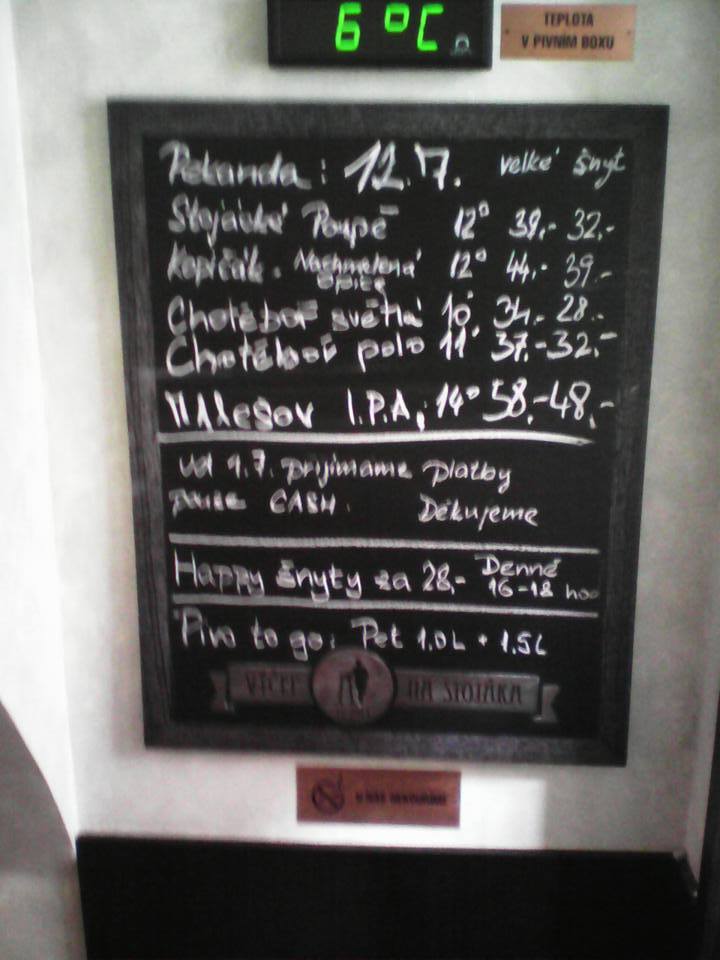 6 °C
TEPLOTA
V PIVNÍM BOXU
12.7. velké šnyt
Poupě 12° 39,- 32,-
Kopičák. Nachmelená 12° 44,- 39,-
opice
Chotěboř světlá 10° 34,- 28,-
Chotěboř polo 11° 37,- 32,-
MALEŠOV I.P.A. 14° 58,- 48,-
od 1.7. prijímame platby
pouze CASH. Děkujeme
Happy šnyty za 28,- Denně
16-18 hod
Pivo to go: Pet 1.0L + 1.5L
VÝČEP NA STOJÁKA
U NÁS NEKOUŘÍME